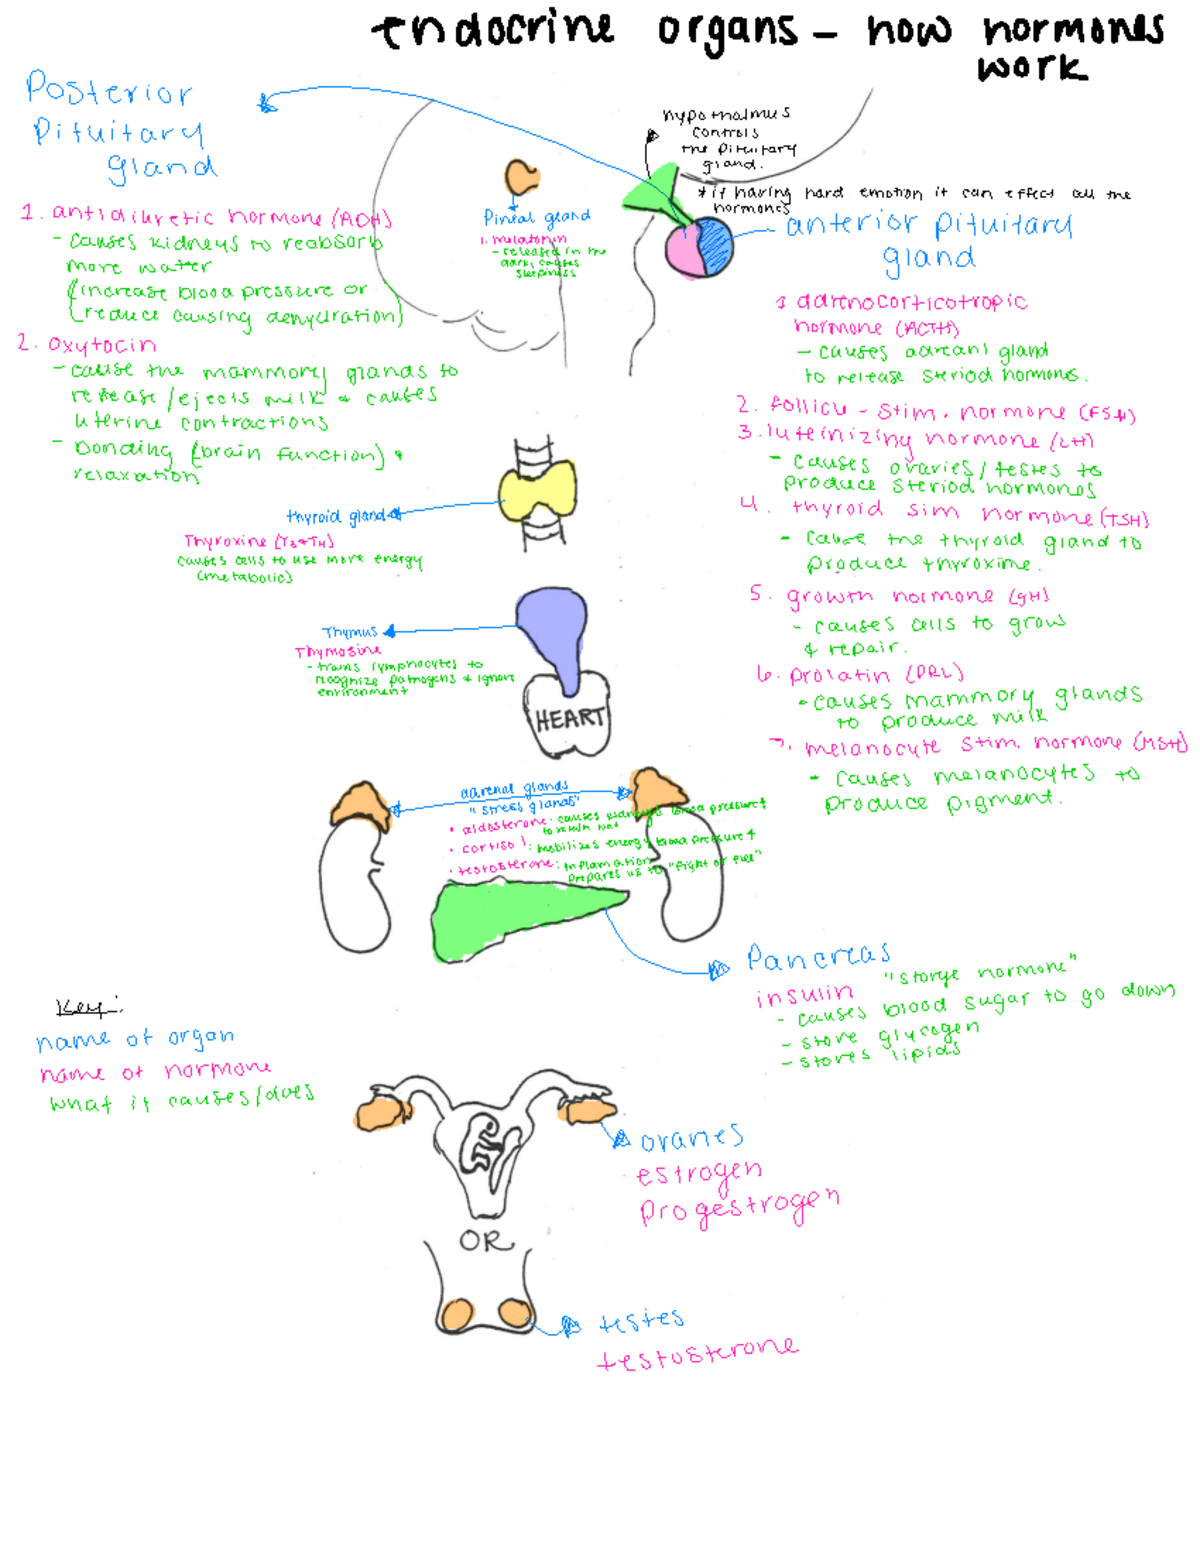 Endocrine organs - how hormones
work
Posterior
Pituitary
gland
1. antidiuretic hormone (ADH)
- causes kidneys to reabsorb
more water
(increase blood pressure or
(reduce causing dehydration)
2. oxytocin
- cause the mammory glands to
release/ejects milk & causes
uterine contractions
- bonding (brain function) &
relaxation
hypothalmus
controls
the pituitary
gland.
* if having hard emotion it can effect all the
hormones
Pineal gland
1. melatonin
- released in the
dark, causes
sleepiness
anterior pituitary
gland
1 adrenocorticotropic
hormone (ACTH)
- causes adreanl gland
to release steriod hormones.
2. follicu - stim. hormone (FSH)
3. luteinizing hormone (LH)
- causes ovaries/testes to
produce steriod hormones
4. thyroid sim hormone (TSH)
- cause the thyroid gland to
produce thyroxime.
5. growth hormone (GH)
- causes cells to grow
& repair.
6. prolatin (PRL)
- causes mammory glands
to produce milk
7. melanocyte stim. hormone (MSH)
- causes melanocytes to
produce pigment.
thyroid gland
Thyroxine
causes cells to use more energy
(metabolic)
Thymus
Thymosine
- trains lymphocytes to
recognize pathogens & ignore
environment
HEART
adrenal glands
"stress glands"
• aldosterone: causes kidneys blood pressure↑
to retain
• cortisol: mobilizes energy blood pressure ↑
• testosterone: inflamation
prepares us to "fight or flee"
Pancreas
insulin "storge hormone"
- causes blood sugar to go down
- store glycogen
- stores lipids
Key:
name of organ
name of hormone
what it causes/does
ovaries
estrogen
Progestrogen
OR
testes
testosterone